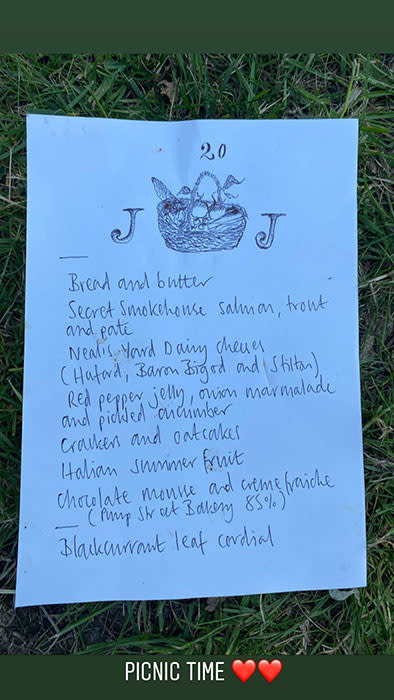 20
J J
Bread and butter
Secret Smokehouse salmon, trout
and pate
Neal's Yard Dairy cheeses
(Hafod, Baron Bigod and Stilton)
Red pepper jelly, onion marmalade
and pickled cucumber
Crackers and oatcakes
Italian summer fruit
Chocolate mousse and creme fraiche
(Pump Street Bakery 85%)
Blackcurrant leaf cordial
PICNIC TIME ❤️❤️